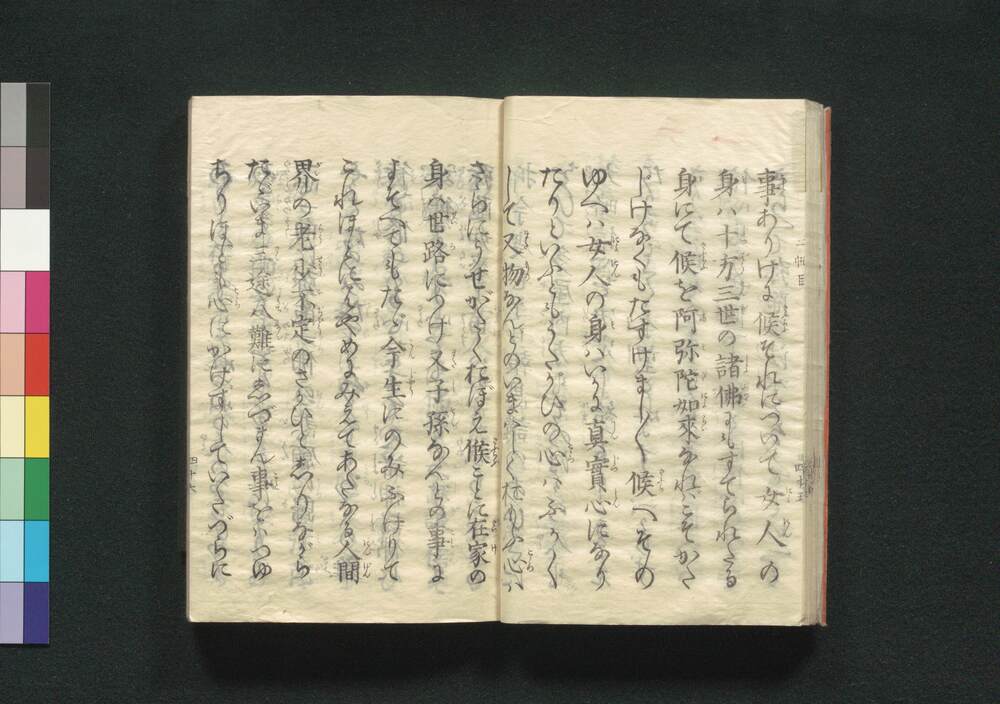 事ありげに候それについて女人の
身ハ十方三世の諸佛にもすてられたる
身にて候を阿弥陀如来なれハこそかた
じけなくもたすけましく候へその
ゆへハ女人の身ハいかに真實心になり
たりといふともうたがひの心ハふかく
して又物なんとのいまハしく思ふ心ハ
さらにうせがたくおぼえ候ことに在家の
身ハ世路につけ又子孫なんとの事に
よそへてもたゞ今生にのみふけりて
これほどにはやめにみえてあだなる人間
界の老少不定のさかひとしりながら
たゞいま三途八難にしづまん事をハつゆ
ちりほども心にかけずしていたづらに
二帖目
四十五
四十六